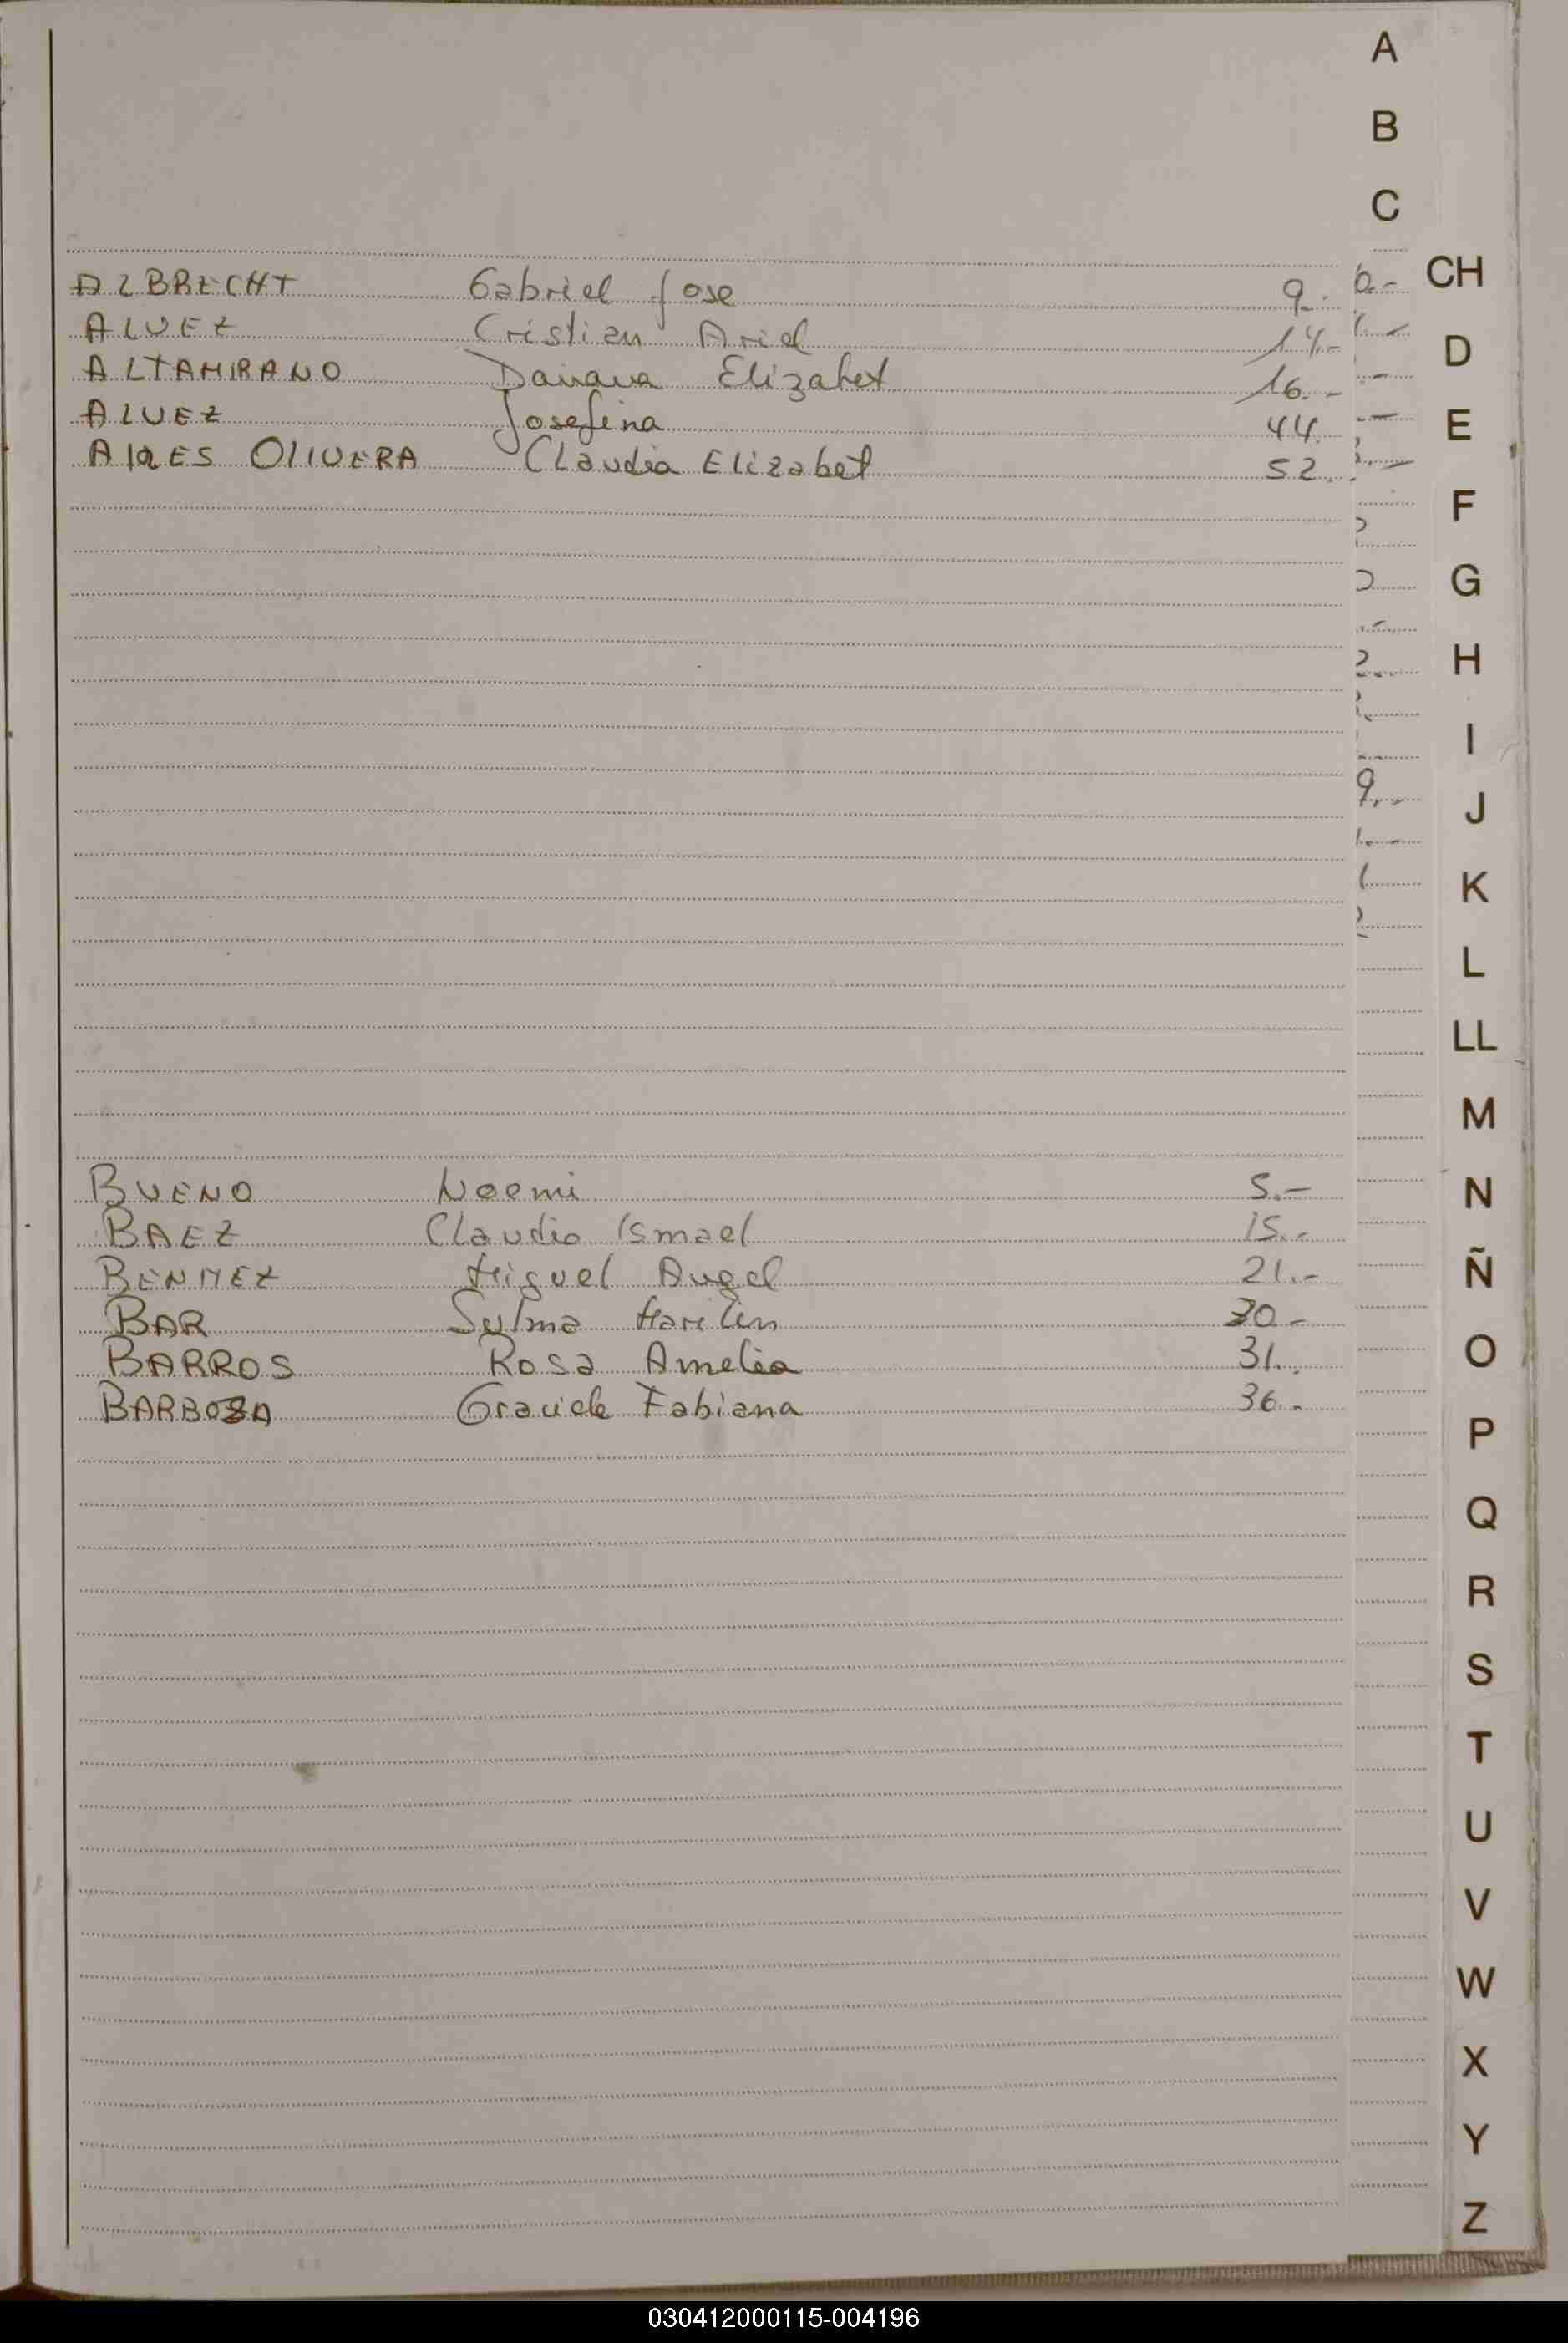 A
B
C
CH
ALBRECHT Gabriel Jose 9.
ALVEZ Cristian Ariel 14.-
D
ALTAMIRANO Daiana Elizabet 16.-
ALVEZ Josefina 44.
E
AIRES OLIVERA Claudia Elizabet 52.
F
G
H
I
J
K
L
LL
M
BUENO Noemi 5.-
N
BAEZ Claudio Ismael 15.-
BENITEZ Miguel Angel 21.-
Ñ
BAR Sylma Marilin 30.-
BARROS Rosa Amelia 31.
O
BARBOZA Graciela Fabiana 36.
P
Q
R
S
T
U
V
W
X
Y
Z
030412000115-004196